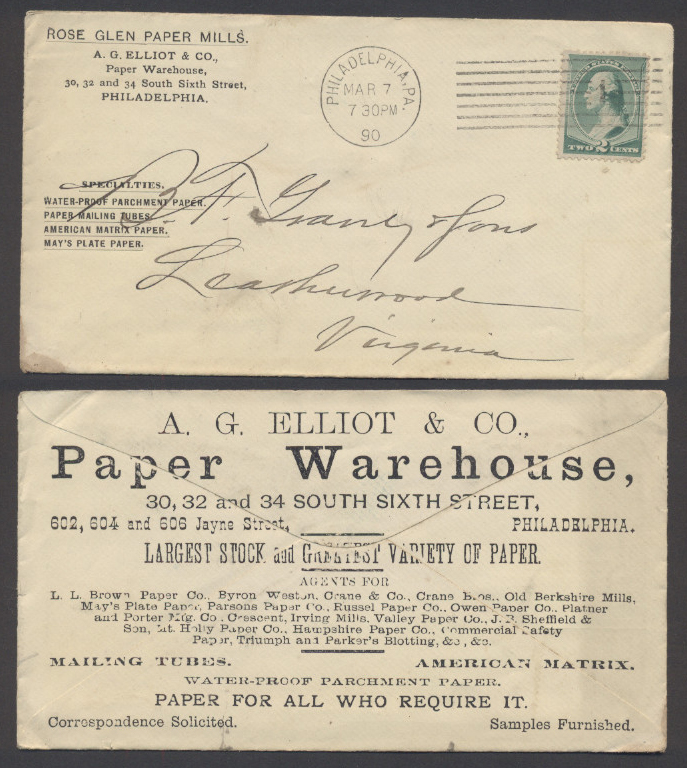 ROSE GLEN PAPER MILLS.
A. G. ELLIOT & CO.,
Paper Warehouse,
30, 32 and 34 South Sixth Street,
PHILADELPHIA.
PHILADELPHIA, PA.
MAR 7
7 30PM
90
TWO 2 CENTS
SPECIALTIES.
WATER-PROOF PARCHMENT PAPER.
PAPER MAILING TUBES.
AMERICAN MATRIX PAPER.
MAY'S PLATE PAPER.
B. F. Gravely & Sons
Leatherwood
Virginia
A. G. ELLIOT & CO.,
Paper Warehouse,
30, 32 and 34 SOUTH SIXTH STREET,
602, 604 and 606 Jayne Street, PHILADELPHIA.
LARGEST STOCK and GREATEST VARIETY OF PAPER.
AGENTS FOR
L. L. Brown Paper Co., Byron Weston, Crane & Co., Crane Bros., Old Berkshire Mills,
May's Plate Paper, Parsons Paper Co., Russel Paper Co., Owen Paper Co., Platner
and Porter Mfg. Co., Crescent, Irving Mills, Valley Paper Co., J. B. Sheffield &
Son, Mt. Holly Paper Co., Hampshire Paper Co., Commercial Safety
Paper, Triumph and Parker's Blotting, &c., &c.
MAILING TUBES. AMERICAN MATRIX.
WATER-PROOF PARCHMENT PAPER.
PAPER FOR ALL WHO REQUIRE IT.
Correspondence Solicited. Samples Furnished.